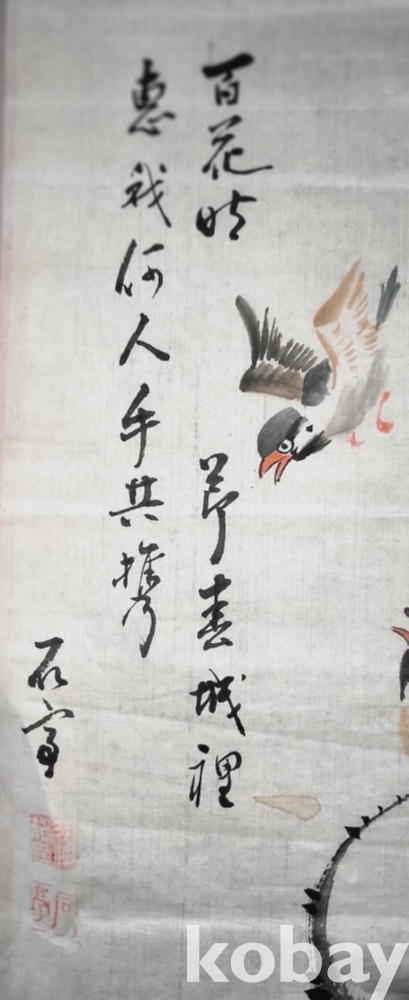 百花時節春城裡
惠我何人手共携
石亭
kobay